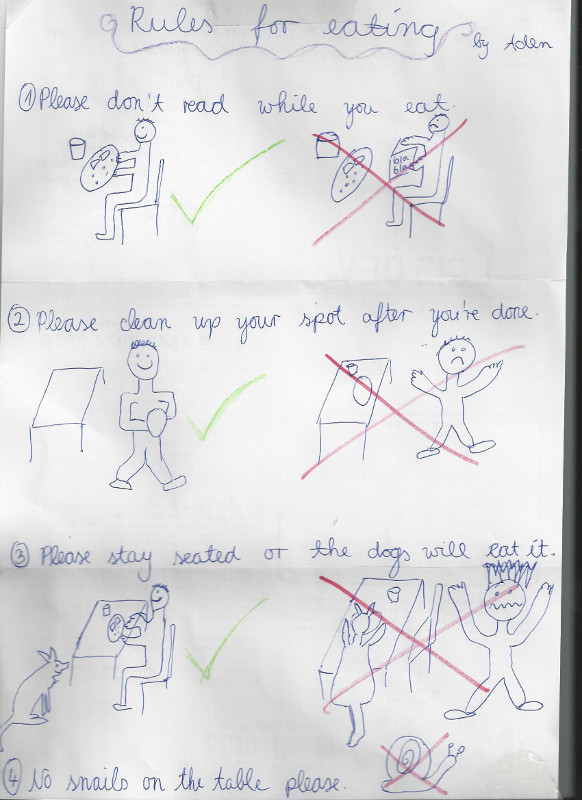 Rules for eating
by Aden
① Please don't read while you eat.
bla
bla
② Please clean up your spot after you're done.
③ Please stay seated or the dogs will eat it.
④ No snails on the table please.